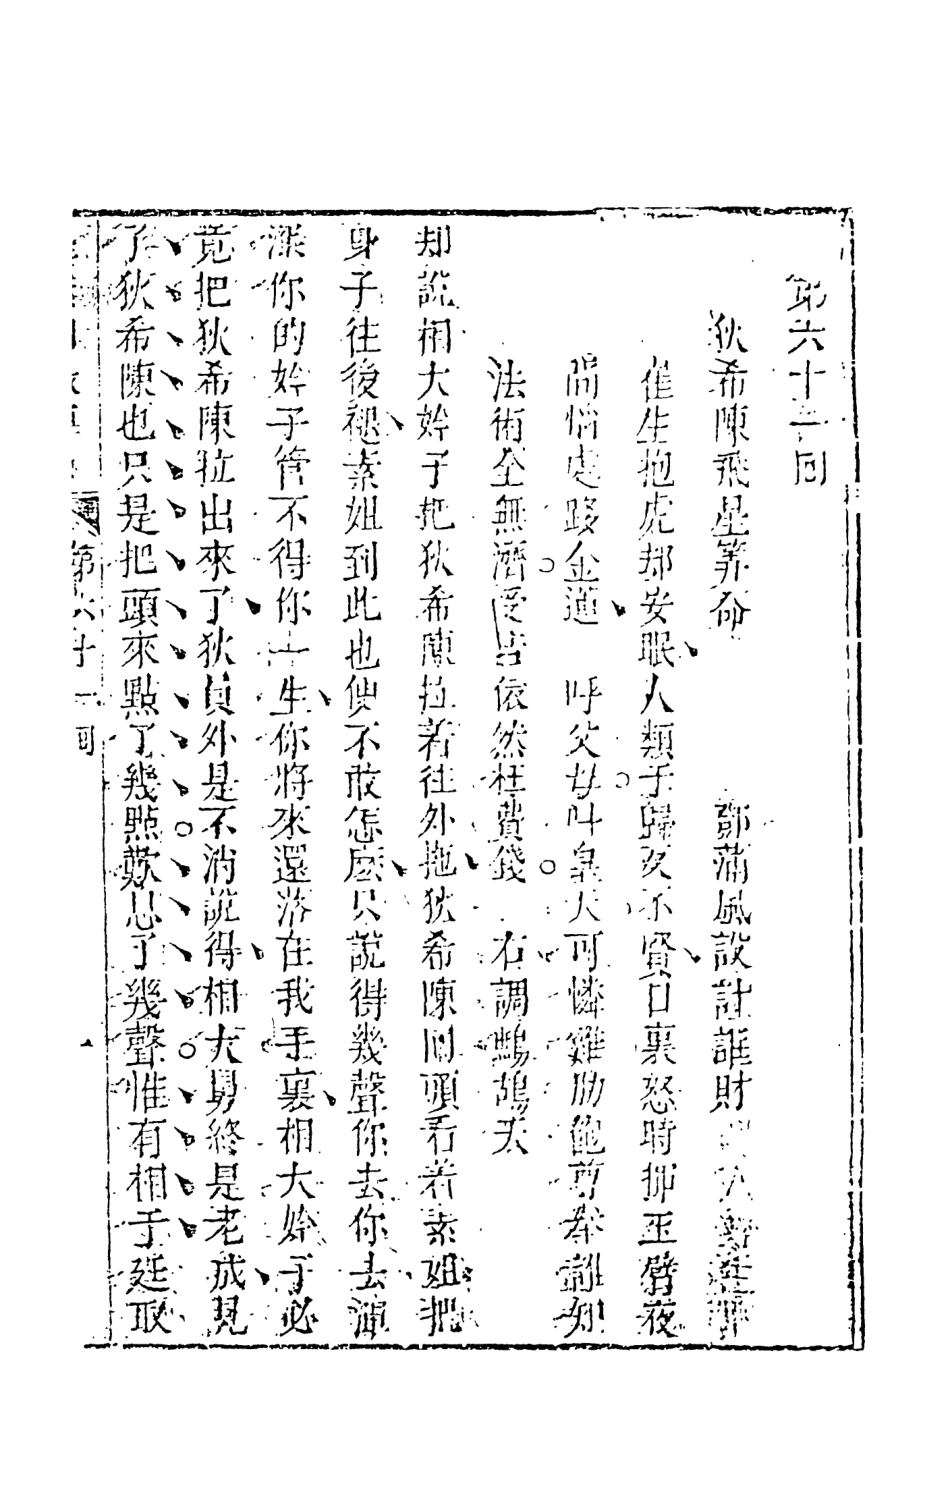 第六十一回
狄希陳飛星算命　鄧蒲風設計誆財
崔生抱虎却安眠人類于歸反不賢日裏怒時揮玉臂夜
間惱處踐金蓮　呼父母叫皇天可憐雞肋飽尊拳誰知
法術全無濟受苦依然枉費錢　右調鷓鴣天
却說相大妗子把狄希陳拉着往外拖狄希陳回頭看着素姐把
身子往後褪素姐到此也便不敢怎麽只說得幾聲你去你去渾
深你的妗子管不得你一生你將來還落在我手裏相大妗子必
竟把狄希陳拉出來了狄員外是不消說得相大舅終是老成見
了狄希陳也只是把頭來點了幾點歎息了幾聲惟有相于廷取
第六十一回